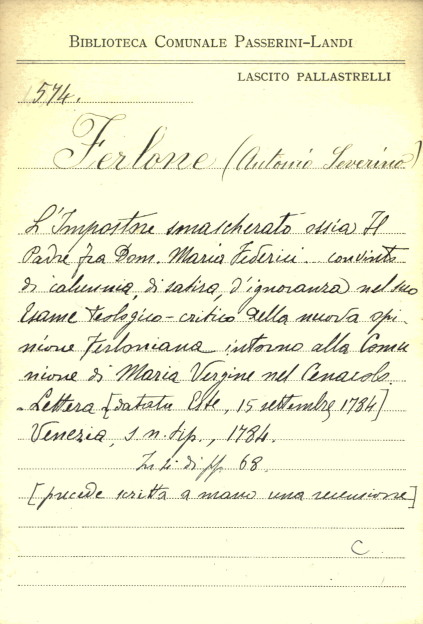 BIBLIOTECA COMUNALE PASSERINI-LANDI
LASCITO PALLASTRELLI
574.
Ferlone (Antonio Severino)
L'Impostore smascherato ossia Il
Padre fra Dom. Maria Federici convinto
di calunnia, di satira, d'ignoranza nel suo
Esame teologico-critico della nuova opi
nione Ferloniana intorno alla Comu
nione di Maria Vergine nel Cenacolo.
- Lettera [datata Este, 15 settembre, 1784]
Venezia, s. n. tip., 1784.
In 4° di pp. 68.
[precede scritta a mano una recensione]
C